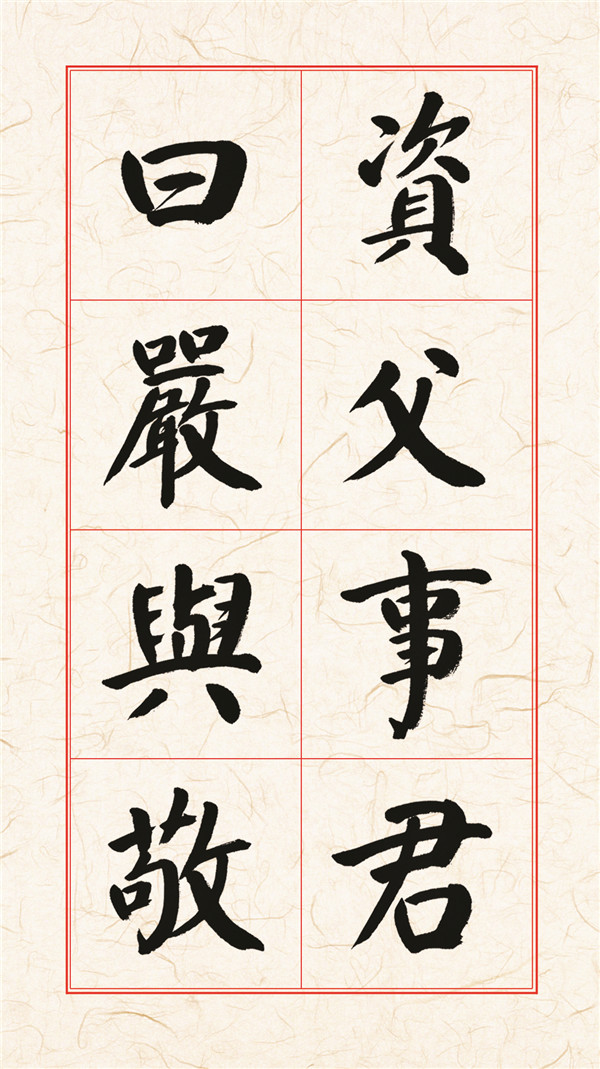 資父事君
曰嚴與敬